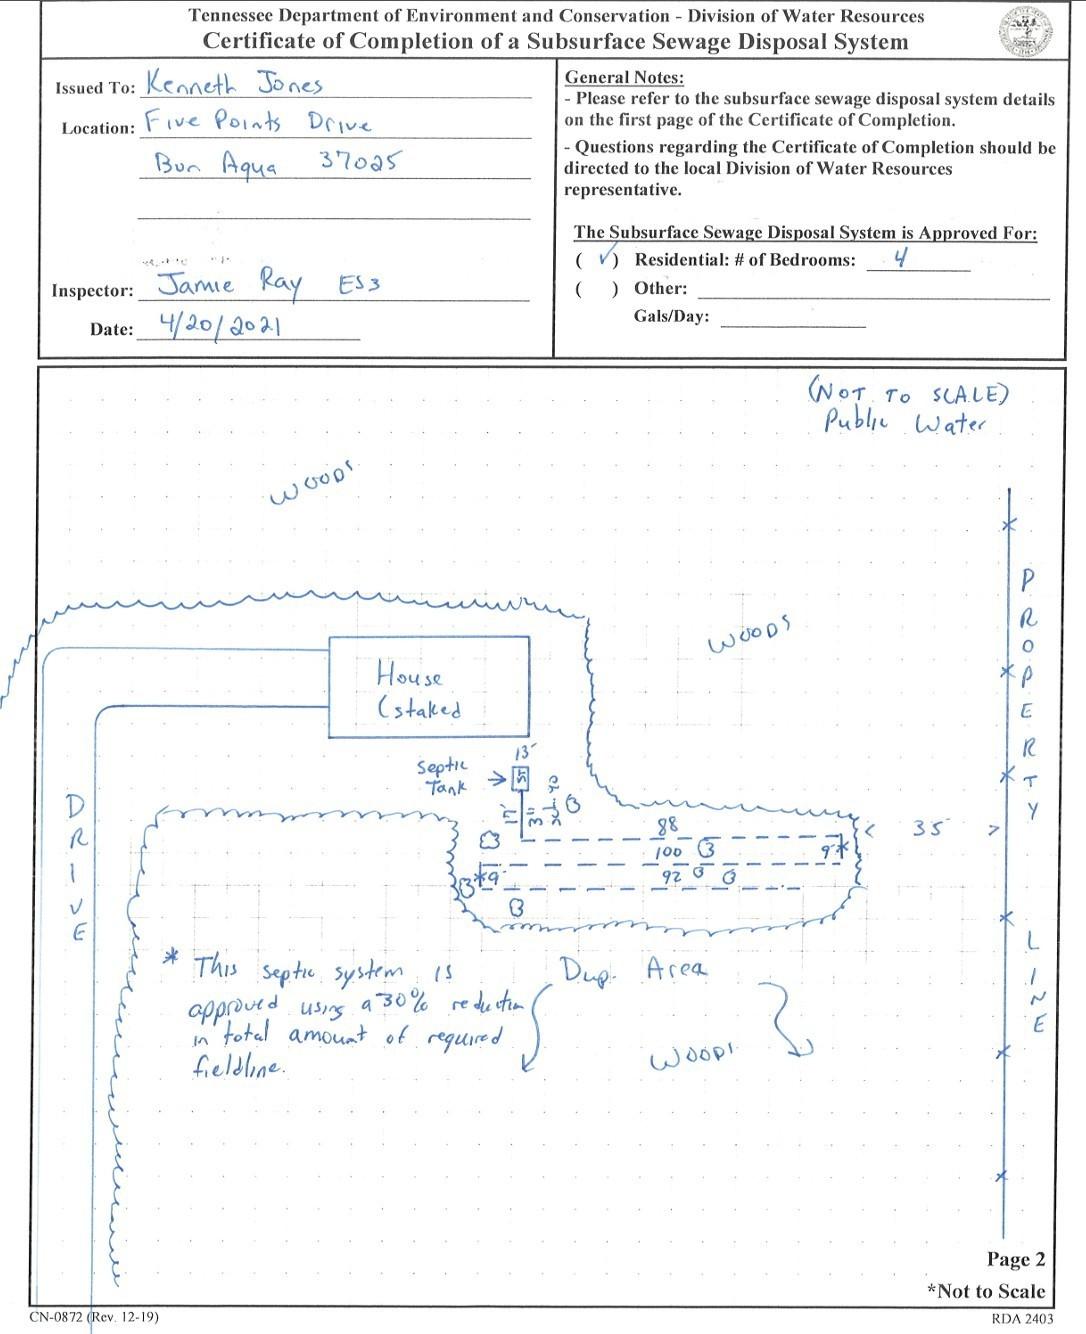 Tennessee Department of Environment and Conservation - Division of Water Resources
Certificate of Completion of a Subsurface Sewage Disposal System
Issued To: Kenneth Jones
Location: Five Points Drive
Bon Aqua 37025
Inspector: Jamie Ray ES3
Date: 4/20/2021
General Notes:
- Please refer to the subsurface sewage disposal system details
on the first page of the Certificate of Completion.
- Questions regarding the Certificate of Completion should be
directed to the local Division of Water Resources
representative.
The Subsurface Sewage Disposal System is Approved For:
( ✓ ) Residential: # of Bedrooms: 4
( ) Other:
Gals/Day:
(NOT TO SCALE)
Public Water
WOODS
WOODS
House
(staked
13'
Septic
Tank
ST
88
100
9'*
*9'
92
35'
DRIVE
PROPERTY LINE
* This septic system is
approved using a 30% reduction
in total amount of required
fieldline.
Dup. Area
WOODS
Page 2
*Not to Scale
CN-0872 (Rev. 12-19)
RDA 2403